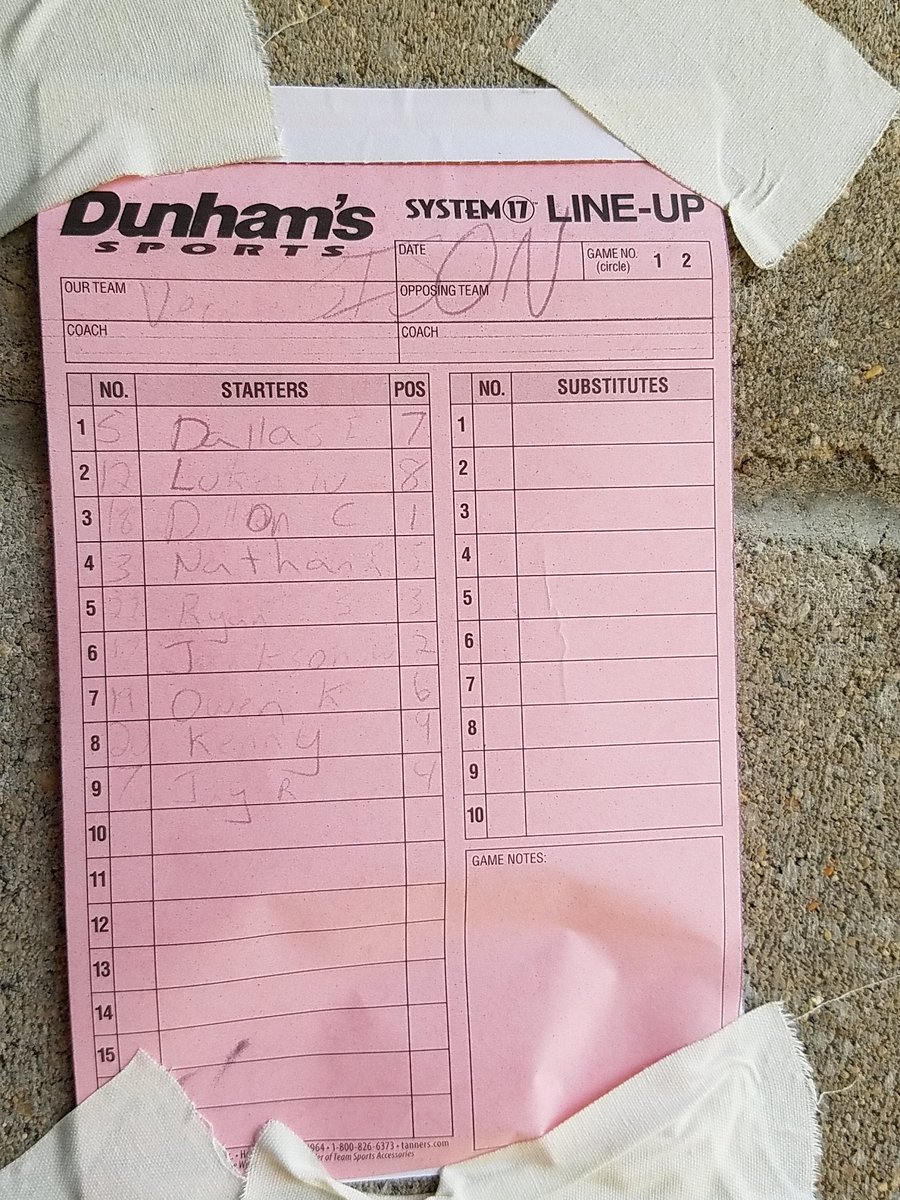 Dunham's SYSTEM 17 LINE-UP
SPORTS
DATE GAME NO. 1 2
(circle)
OUR TEAM OPPOSING TEAM
COACH COACH
NO. STARTERS POS
1 5 Dallas I 7
2 12 Luke W 8
3 18 Dillon C 1
4 3 Nathan
5 Ryan S 3
6 Jackson 2
7 Owen K 6
8 Kenny 9
9 7 Jay R 4
10
11
12
13
14
15
NO. SUBSTITUTES
1
2
3
4
5
6
7
8
9
10
GAME NOTES:
964 • 1-800-826-6373 • tanners.com
of Team Sports Accessories